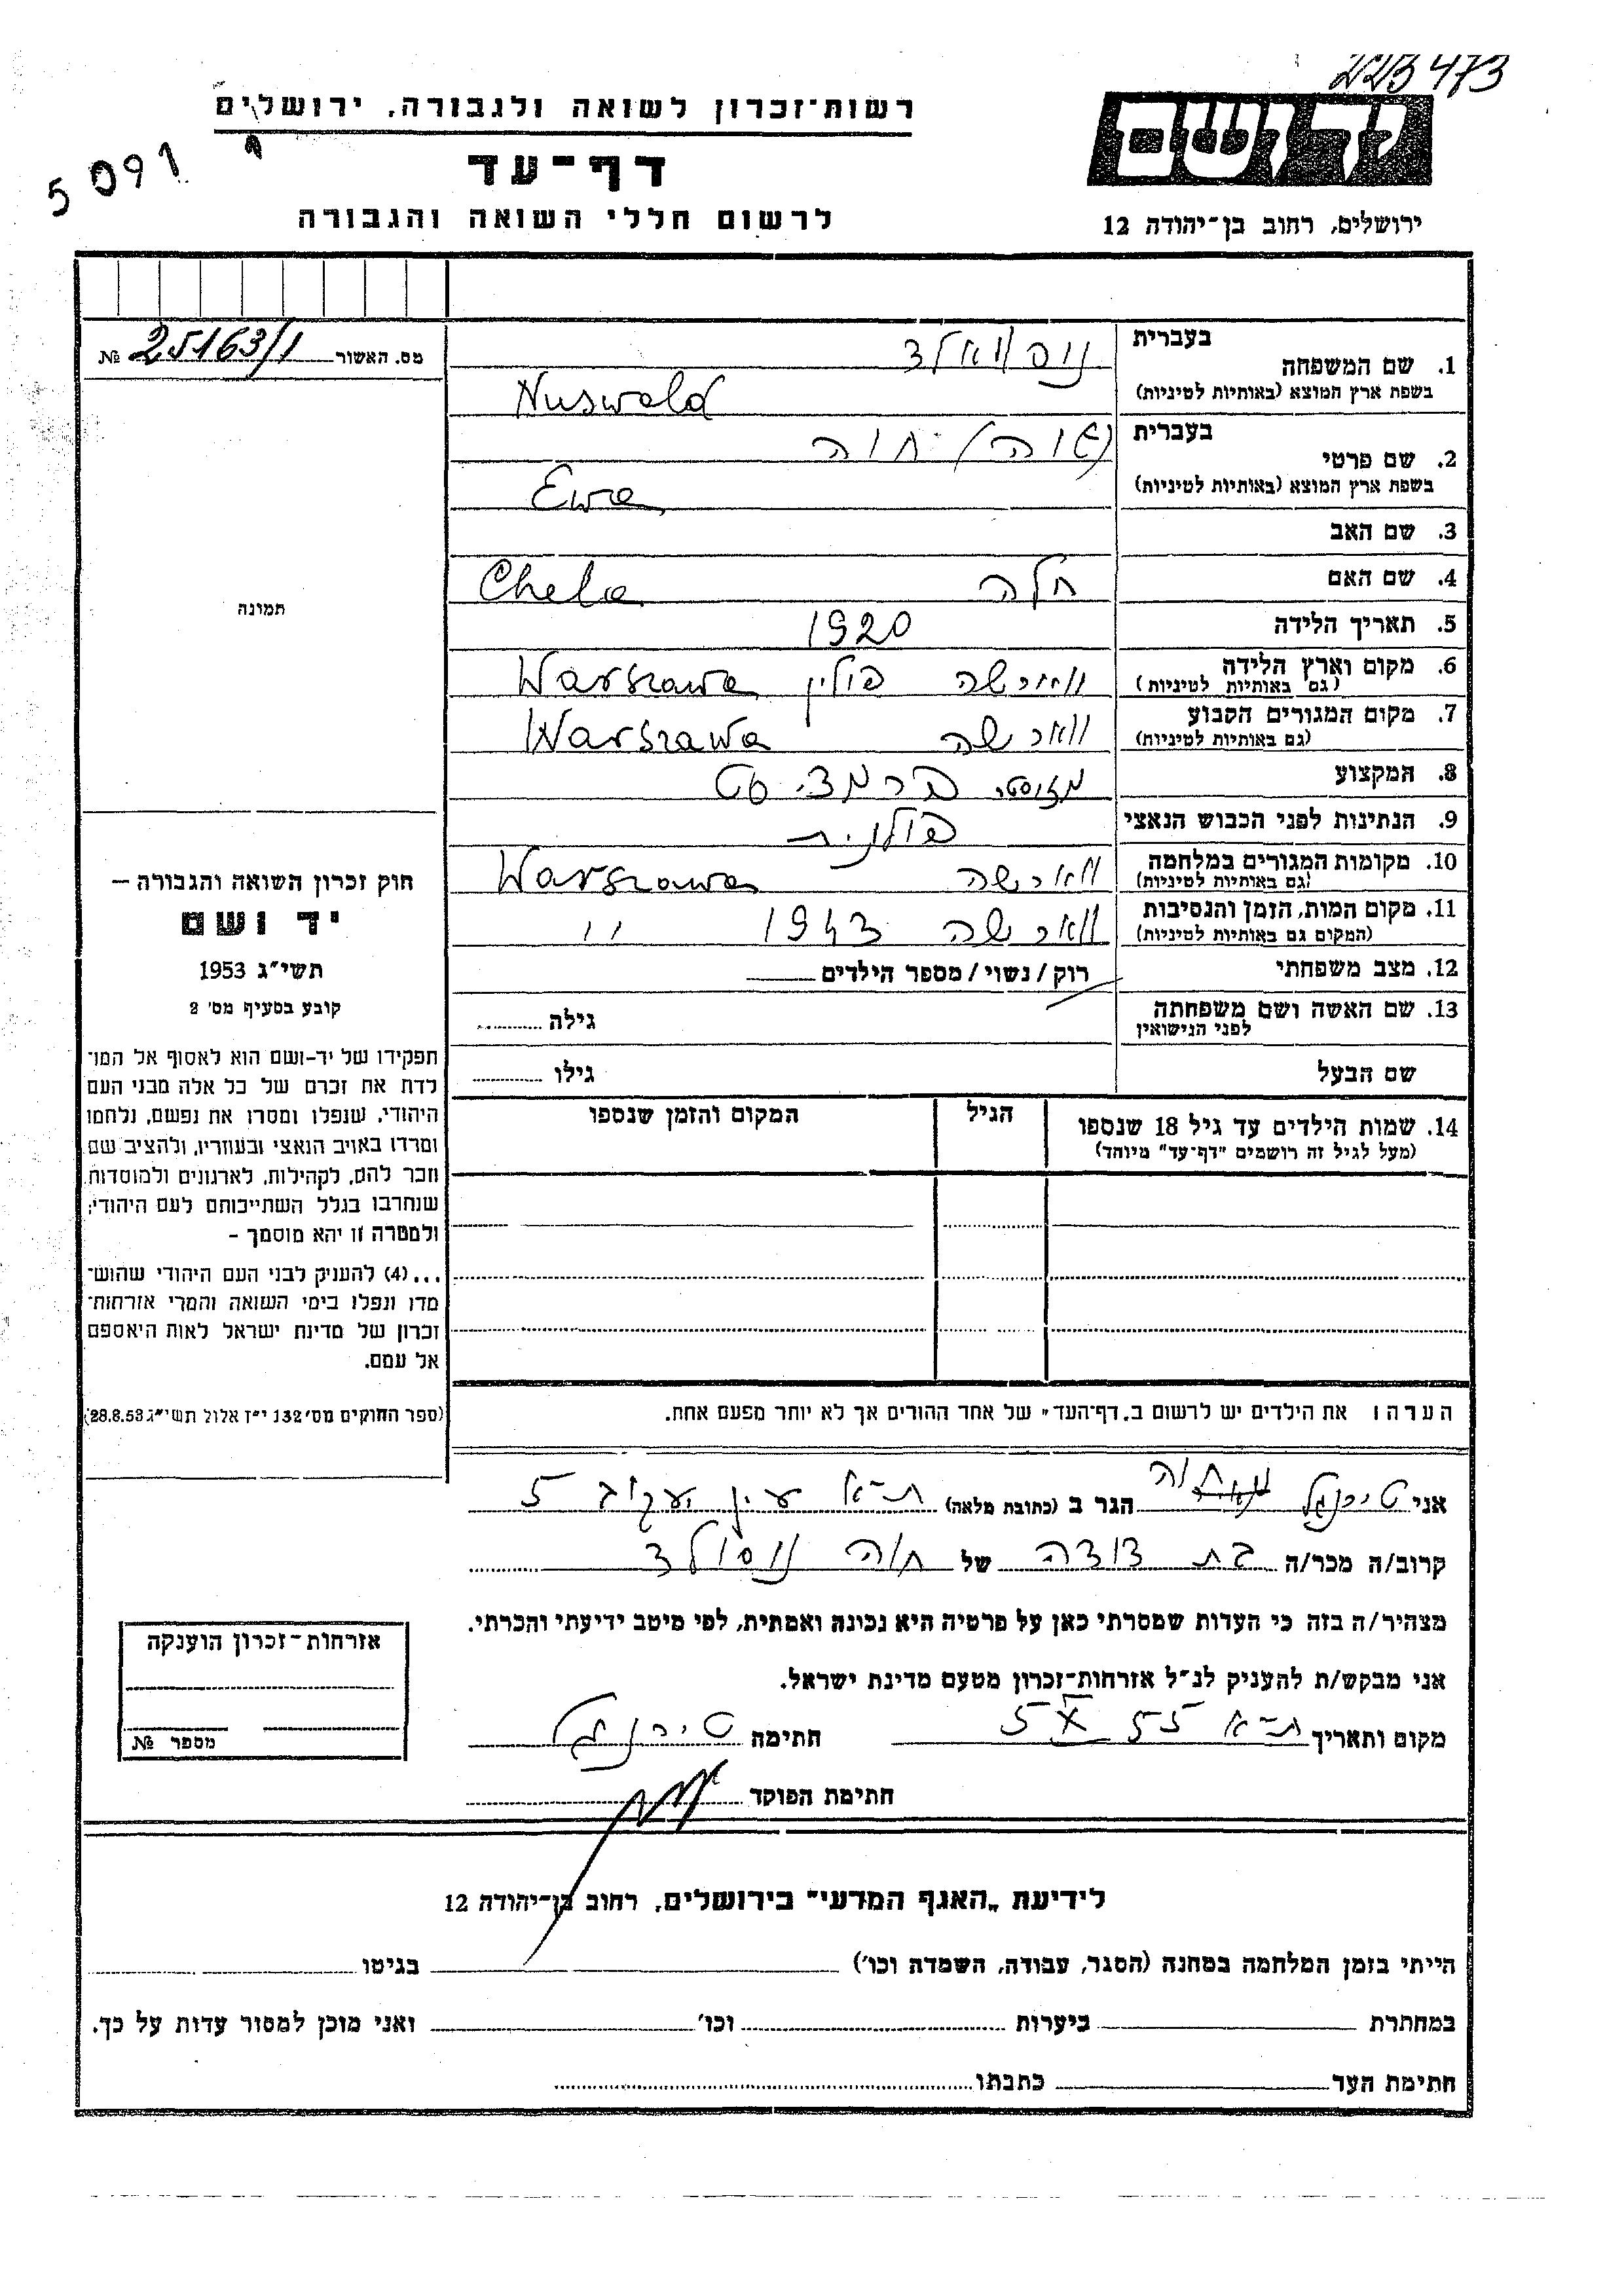 223473
רשות־זכרון לשואה ולגבורה, ירושלים
5091
דף־עד
לרשום חללי השואה והגבורה
ידושם
ירושלים, רחוב בן־יהודה 12
מס. האשור 25163/1 №
בעברית
1. שם המשפחה נוסוואלד
בשפת ארץ המוצא (באותיות לטיניות) Nuswald
בעברית
2. שם פרטי חוה
בשפת ארץ המוצא (באותיות לטיניות) Ewa
3. שם האב
4. שם האם חלה Chela
5. תאריך הלידה 1920
6. מקום וארץ הלידה ווארשה פולין Warszawa
(גם באותיות לטיניות)
7. מקום המגורים הקבוע ווארשה Warszawa
(גם באותיות לטיניות)
8. המקצוע
9. הנתינות לפני הכבוש הנאצי פולנית
10. מקומות המגורים במלחמה ווארשה Warszawa
(גם באותיות לטיניות)
11. מקום המות, הזמן והנסיבות ווארשה 1943 ״
(המקום גם באותיות לטיניות)
12. מצב משפחתי רוק/נשוי/מספר הילדים
13. שם האשה ושם משפחתה
לפני הנישואין
גילה
שם הבעל גילו
14. שמות הילדים עד גיל 18 שנספו
(מעל לגיל זה רושמים "דף־עד" מיוחד)
הגיל
המקום והזמן שנספו
הערה: את הילדים יש לרשום ב„דף־העד" של אחד ההורים אך לא יותר מפעם אחת.
תמונה
חוק זכרון השואה והגבורה —
יד ושם
תשי״ג 1953
קובע בסעיף מס׳ 2
תפקידו של יד-ושם הוא לאסוף אל המו־
לדת את זכרם של כל אלה מבני העם
היהודי, שנפלו ומסרו את נפשם, נלחמו
ומרדו באויב הנאצי ובעוזריו, ולהציב שם
וזכר להם, לקהילות, לארגונים ולמוסדות
שנחרבו בגלל השתייכותם לעם היהודי;
ולמטרה זו יהא מוסמך –
...(4) להעניק לבני העם היהודי שהוש־
מדו ונפלו בימי השואה והמרי אזרחות־
זכרון של מדינת ישראל לאות היאספם
אל עמם.
(ספר החוקים מס׳ 132 י״ז אלול תשי״ג 28.8.53)
אני חוה הגר ב (כתובת מלאה) ת־א עין יעקב 5
קרוב/ה מכר/ה בת דודה של חוה נוסולד
מצהיר/ה בזה כי העדות שמסרתי כאן על פרטיה היא נכונה ואמתית, לפי מיטב ידיעתי והכרתי.
אני מבקש/ת להעניק לנ״ל אזרחות־זכרון מטעם מדינת ישראל.
מקום ותאריך ת־א 5 X 55 חתימה
חתימת הפוקד
אזרחות־זכרון הוענקה
מספר №
לידיעת „האגף המדעי" בירושלים, רחוב בן־יהודה 12
הייתי בזמן המלחמה במחנה (הסגר, עבודה, השמדה וכו׳) בגיטו
במחתרת ביערות וכו׳ ואני מוכן למסור עדות על כך.
חתימת העד כתבתו